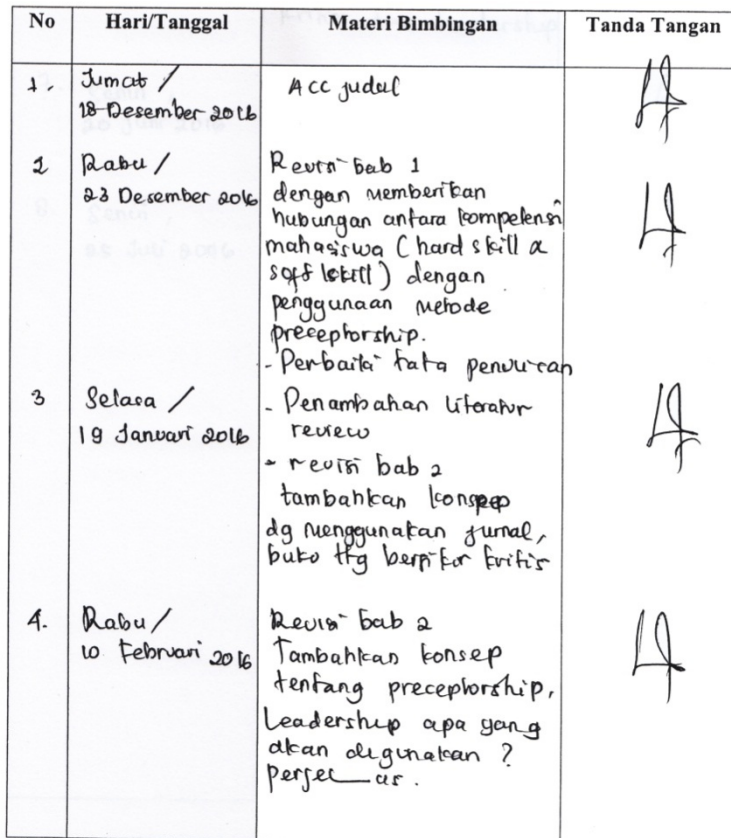 No Hari/Tanggal Materi Bimbingan Tanda Tangan
1. Jumat / Acc judul
18 Desember 2016
2 Rabu / Revisi bab 1
23 Desember 2016 dengan memberikan
hubungan antara kompetensi
mahasiswa (hard skill &
soft skill) dengan
penggunaan metode
preceptorship.
- Perbaiki tata penulisan
3 Selasa / - Penambahan literatur
19 Januari 2016 review
- revisi bab 2
tambahkan konsep
dg menggunakan jurnal,
buku ttg berpikir kritis
4. Rabu / Revisi bab 2
10 Februari 2016 Tambahkan konsep
tentang preceptorship,
Leadership apa yang
akan digunakan ?